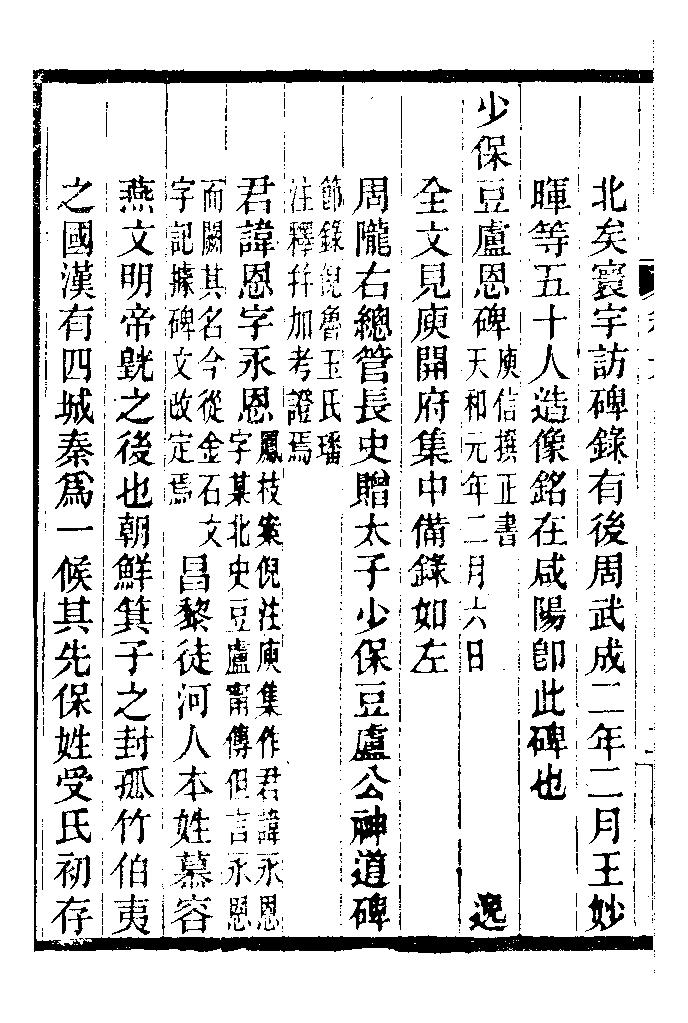 北矣寰宇訪碑錄有後周武成二年二月王妙
暉等五十人造像銘在咸陽卽此碑也
少保豆盧恩碑
庾信撰正書
天和元年二月六日
逸
全文見庾開府集中備錄如左
周隴右總管長史贈太子少保豆盧公神道碑
節錄倪魯玉氏璠
注釋幷加考證焉
君諱恩字永恩
鳳枝案倪注庾集作君諱永恩
字某北史豆盧甯傳但言永恩
而闕其名今從金石文
字記據碑文改定焉
昌黎徒河人本姓慕容
燕文明帝皝之後也朝鮮箕子之封孤竹伯夷
之國漢有四城秦爲一候其先保姓受氏初存